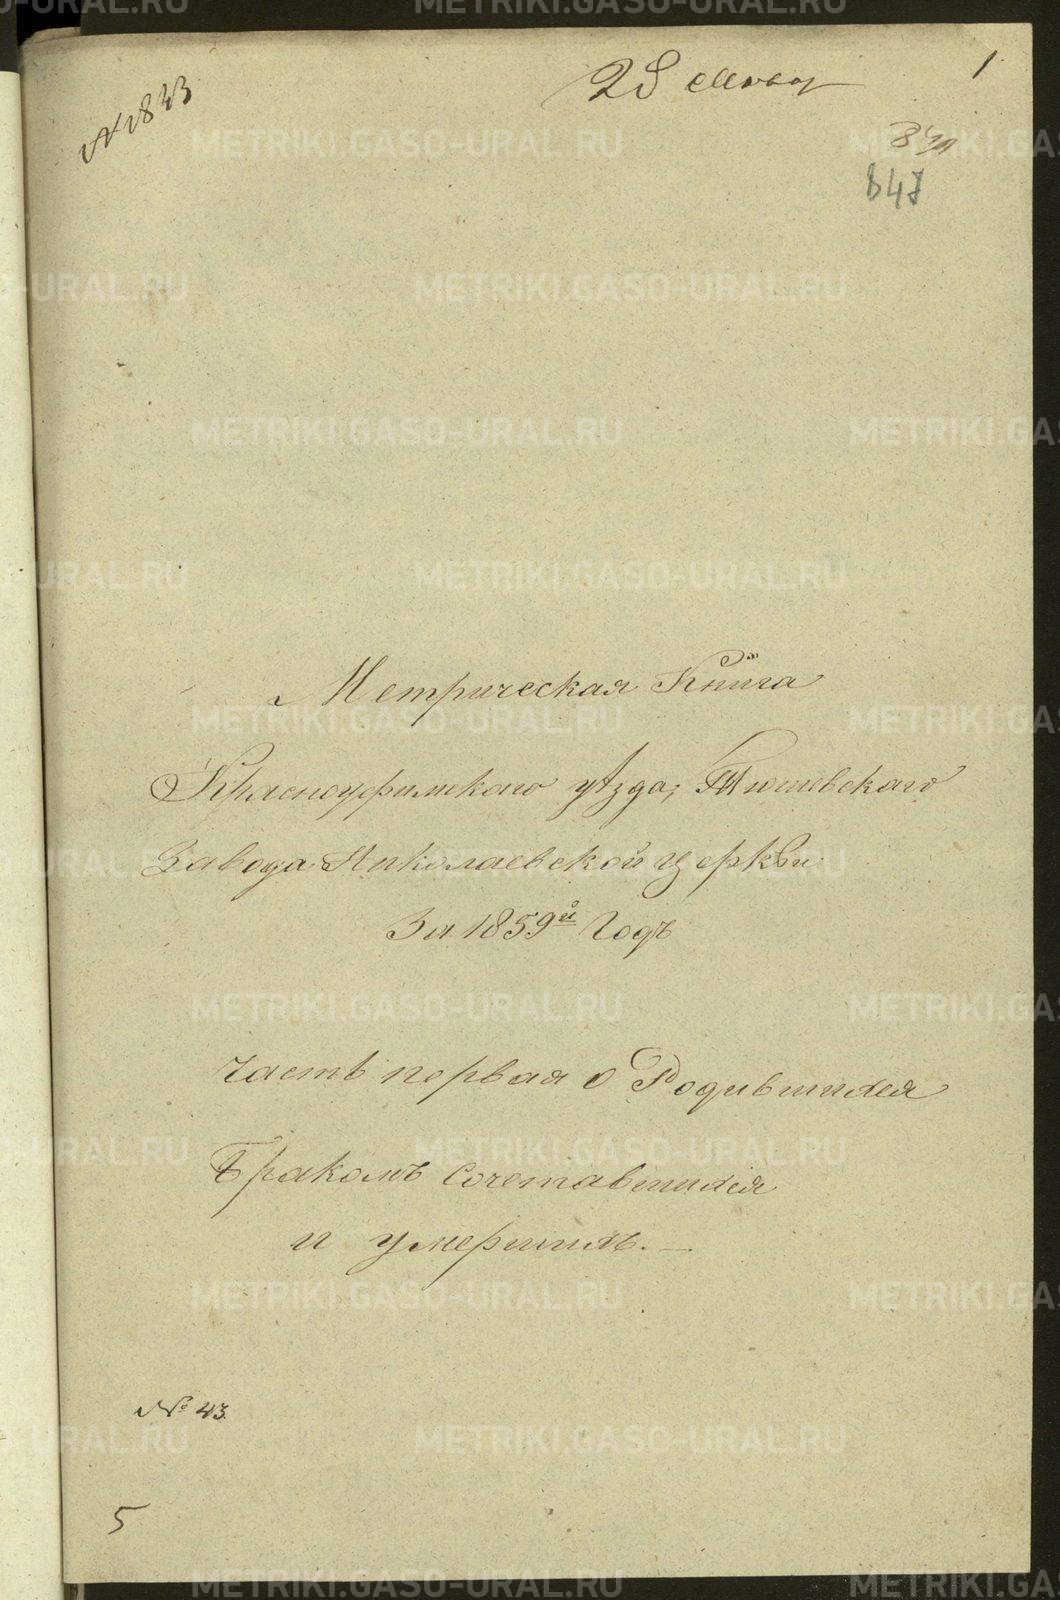 1
№ 1843
847
Метрическая Книга
Красноуфимскаго уѣзда, Тюшевскаго
Завода Николаевской церкви
За 1859й Годъ
часть первая о Родившихся
Бракомъ Сочетавшихся
и умершихъ. —
№ 43.
5
METRIKI.GASO-URAL.RU